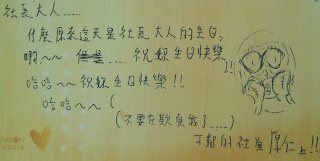 社長大人.....
什麼原來這天是社長大人的生日,
啊~~ 但是.... 祝妳生日快樂!!
哈哈~~祝妳生日快樂!!
哈哈~~(
(不要在欺負我了....)
可憐的社員 厚仁上!!